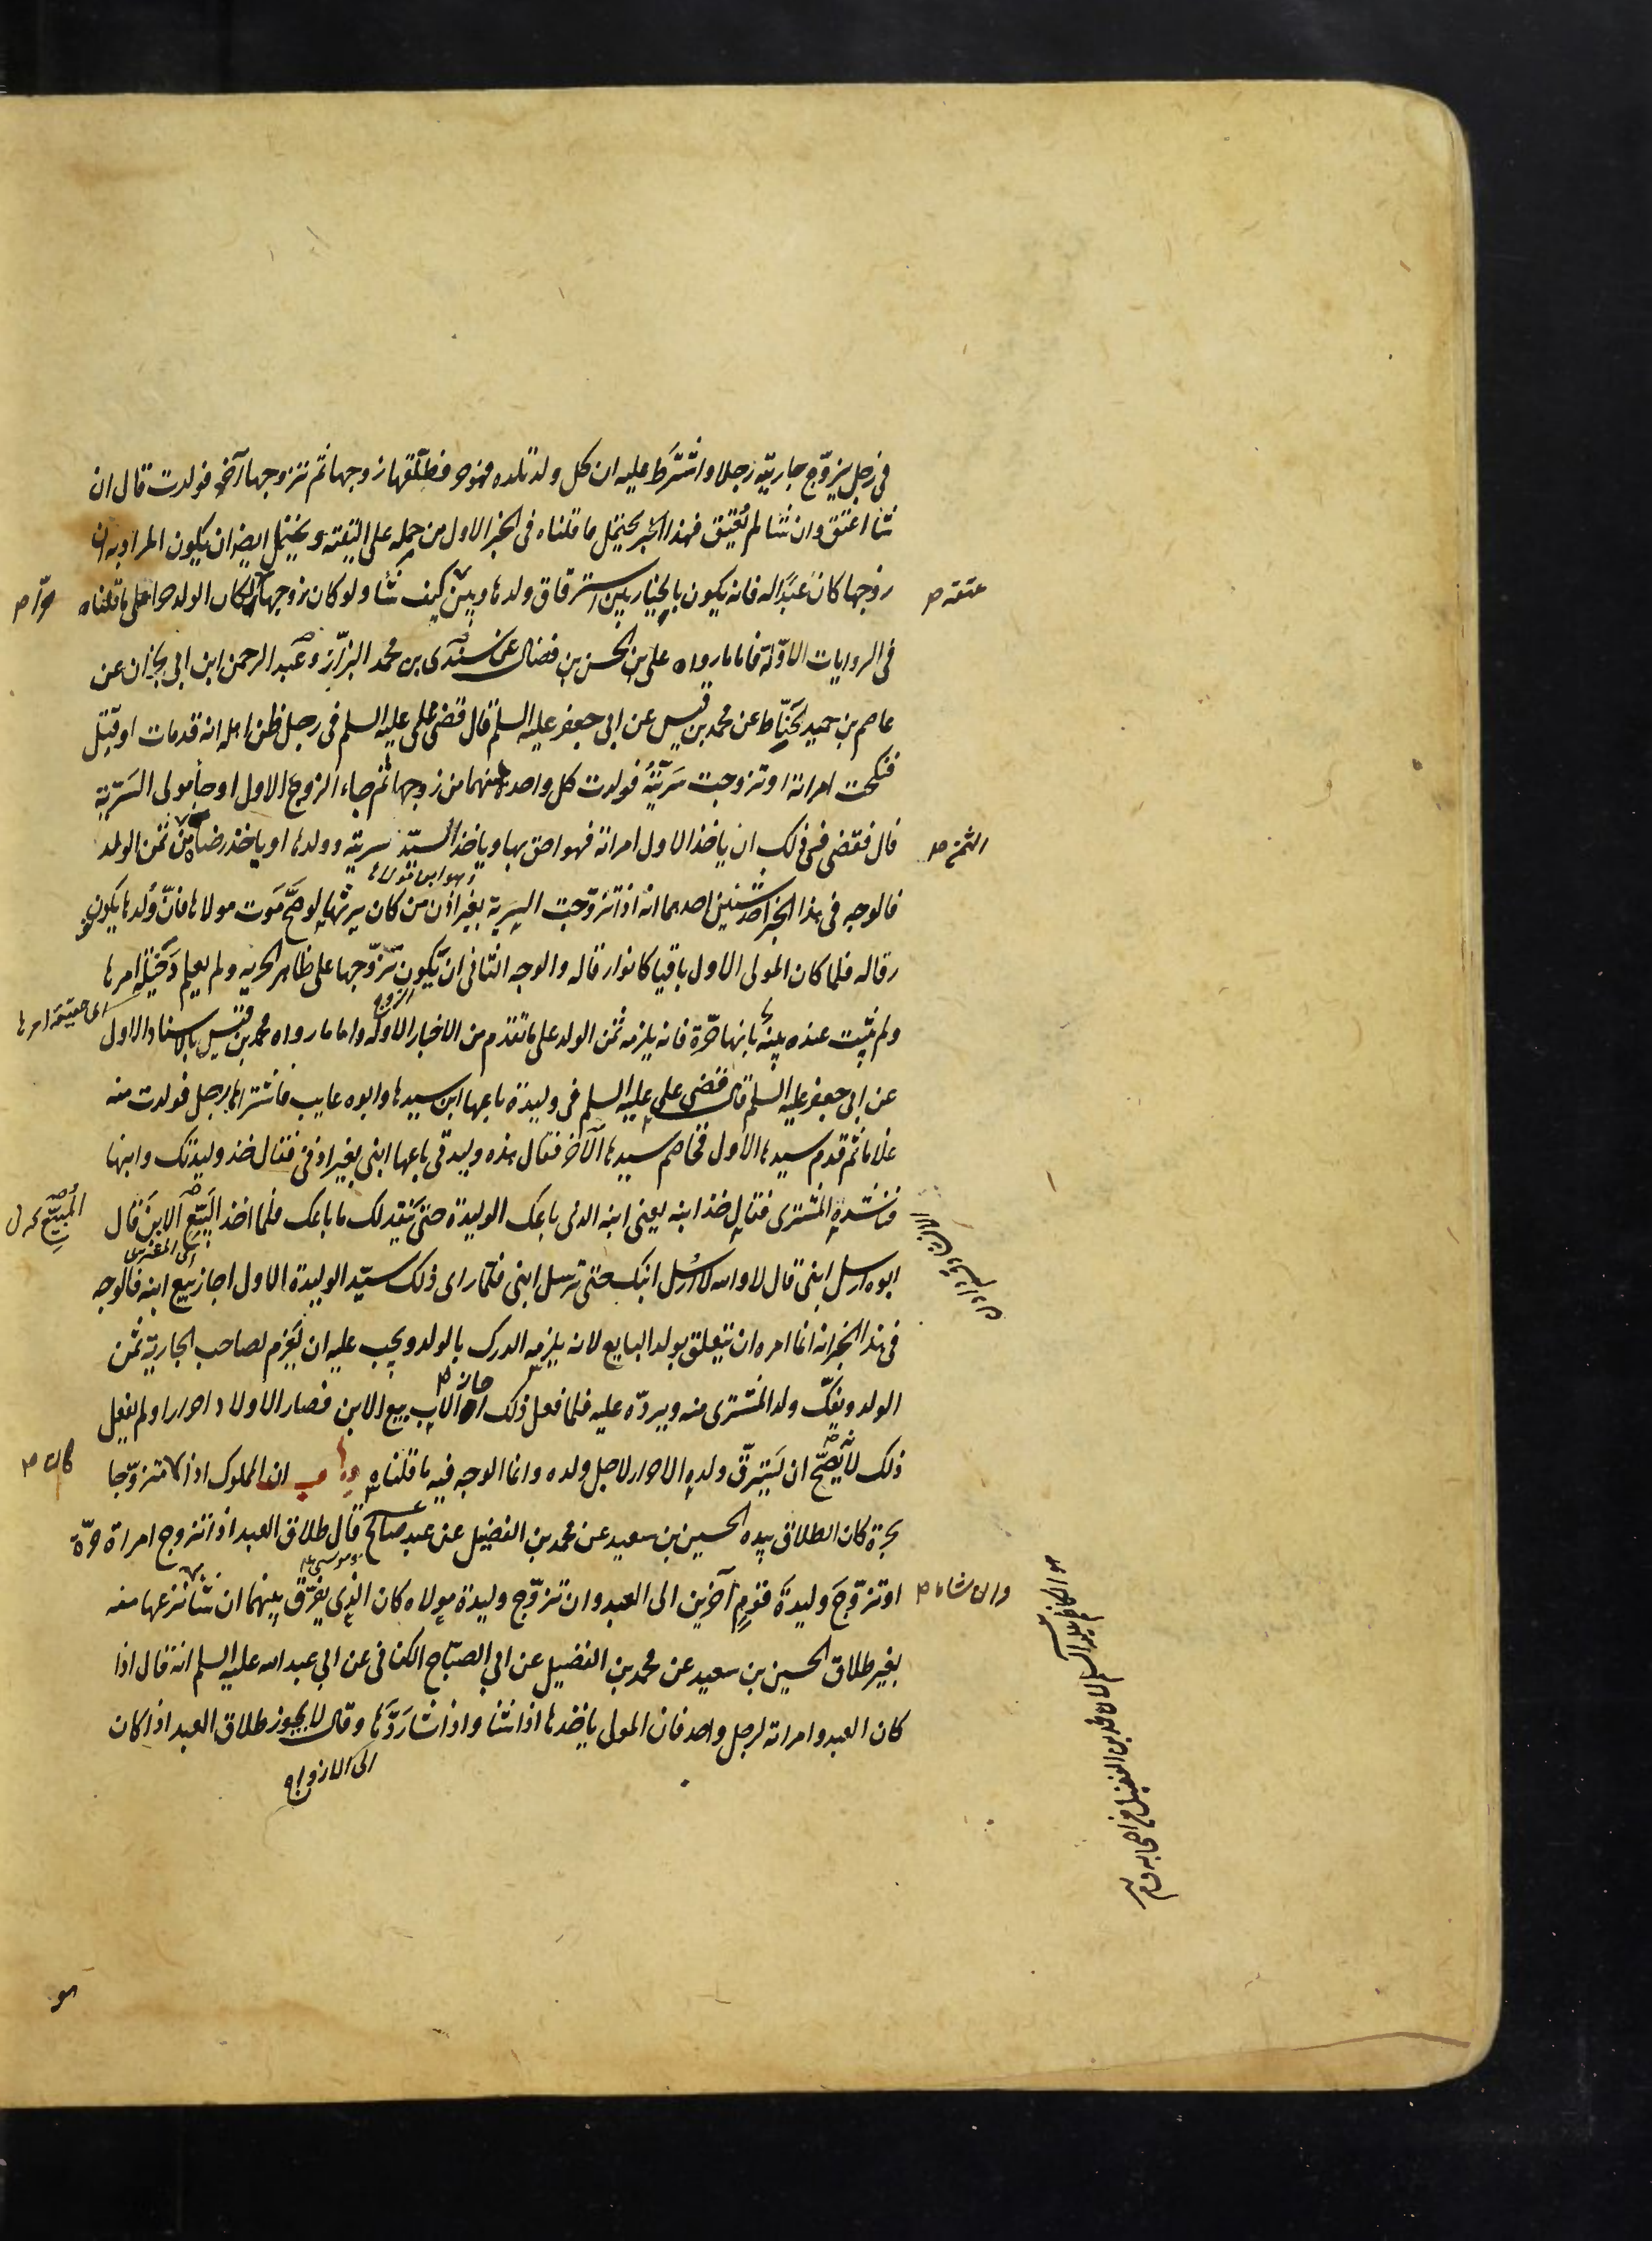 في رجل يزوّج جاريته رجلا واشترط عليه ان كل ولد تلده فهو حر فطلقها زوجها ثم تزوجها آخر فولدت قال ان
شا اعتق وان شا لم يُعتِق فهذا الخبر يحتمل ما قلناه في الخبر الاول من حمله على التقية ويحتمل ايضا ان يكون المراد به ان
زوجها كان عَبدًا له فانه يكون بالخيار بين استرقاق ولدها وبين كيف شا ولو كان زوجها لكان الولد حرا على ما قلناه
عتقه
حرّا
في الروايات الاوّلة فاما ما رواه علي بن الحسن بن فضال عن سندي بن محمد البزّاز وعبد الرحمن ابن ابي نجران عن
عاصم بن حميد الحَنّاط عن محمد بن قيس عن ابي جعفر عليه السلم قال قضى علي عليه السلم في رجل ظن اهله انه قد مات او قتل
فنكحت امراته او تزوجت سَريّتُه فولدت كل واحدة منهما من زوجها ثم جاء الزوج الاول او جا مولى السَريّة
قال فقضى في ذلك ان ياخذ الاول امراته فهو احق بها وياخذ السيّد سريته وولدها او ياخذ رضاه من ثمن الولد
الثمن
وهو ابن مولاها
فالوجه في هذا الخبر احد شيئين احدهما انه اذا تزوّجت السرية بغير اذن من كان يرثها لو صَحّ مَوت مولاها فانّ وُلدها يكون
رقا له فلما كان المولى الاول باقيا كانوا رقا له والوجه الثاني ان يَكون تزوّجها على ظاهر الحرية ولم يعلم دَخيلة امرها
اى حقيقة امرها
ولم يثبت عنده بينة بانها حرّة فانه يلزمه ثمن الولد على ما تقدم من الاخبار الاولة واما ما رواه محمد بن قيس بالاسناد الاول
الزوج
عن ابي جعفر عليه السلم قال قضى علي عليه السلم في وليدة باعها ابن سيدها وابوه غايب فاشتراها رجل فولدت منه
غلاما ثم قدم سيدها الاول فخاصم سيدها الآخر فقال هذه وليدتي باعها ابني بغير اذني فقال خذ وليدتك وابنها
فناشده المشترى فقال خذ ابنه يعني ابنه الذي باعك الوليدة حتى يَنقد لك ما باعك فلما اخذ البَيّع الابن قال
اى المشترى
ابوه ارسل ابني قال لا والله لا ارُسل ابنك حتى ترسل ابني فلما راى ذلك سيّد الوليدة الاول اجاز بيع ابنه فالوجه
في هذا الخبر انه انما امره ان يتعلق بولد البايع لانه يلزمه الدرك بالولد ويجب عليه ان يَغرم لصاحب الجارية ثمن
الولد ويفكّ ولد المشترى منه ويردّه عليه فلما فعل ذلك الاب بيع الابن فصار الاولاد احرارا ولم يفعل
جاز
ذلك لا يَصِحّ ان يَسترقّ ولده الاحرار لاجل ولده وانما الوجه فيه ما قلناه باب ان المملوك اذا متزوّجا
كان
بحرة كان الطلاق بيده الحسين بن سعيد عن محمد بن الفضيل عن عبد صالح قال طلاق العبد اذا تزوج امراة حرّة
او تزوّجَ وليدة قوم آخرين الى العبد وان تزوّج وليدة مولاه كان الذي يفرّق بينهما ان شا نزعها منه
وان شاء
بغير طلاق الحسين بن سعيد عن محمد بن الفضيل عن ابي الصبّاح الكناني عن ابي عبد الله عليه السلم انه قال اذا
كان العبد وامراته لرجل واحد فان المولى ياخذها اذا شا واذا شا رَدّها وقال لا يجوز طلاق العبد اذا كان
الى الازواج
هو